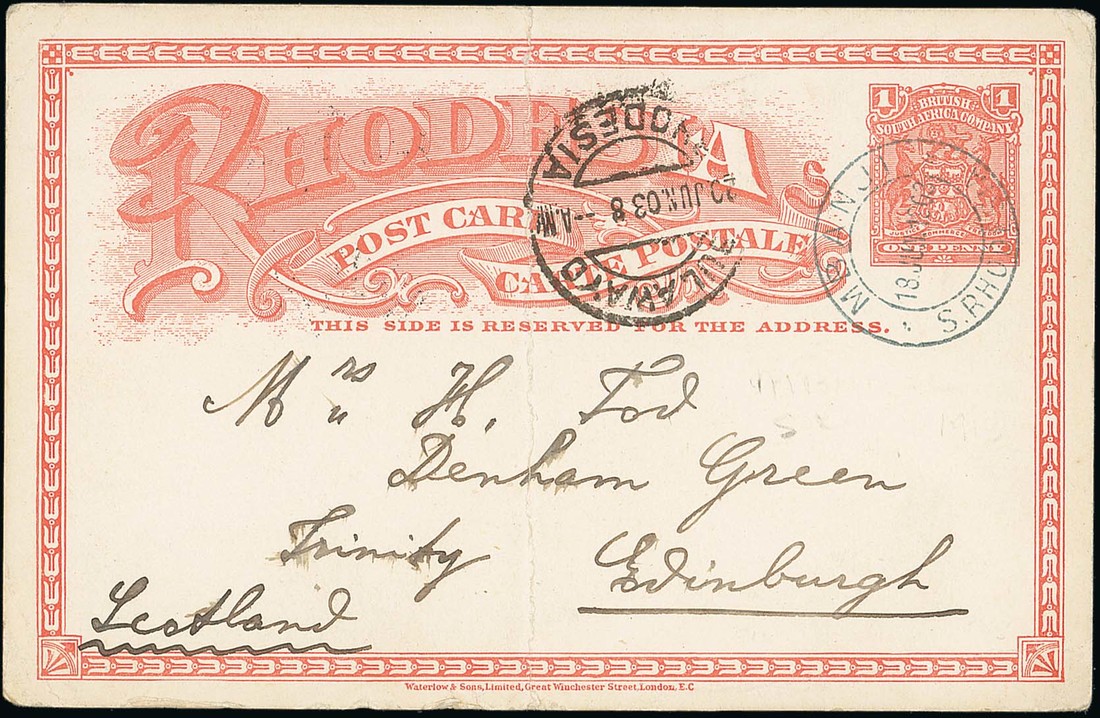 RHODESIA
POST CARD
CARTE POSTALE
THIS SIDE IS RESERVED FOR THE ADDRESS.
1 1
BRITISH
SOUTH AFRICA COMPANY
JUSTICE COMMERCE
ONE PENNY
RHODESIA
20 JUN. 03 8 -- A.M.
BULAWAYO
S. RHO
18 JUN
Mrs H. Tod
Denham Green
Trinity Edinburgh
Scotland
Waterlow & Sons, Limited, Great Winchester Street, London, E.C